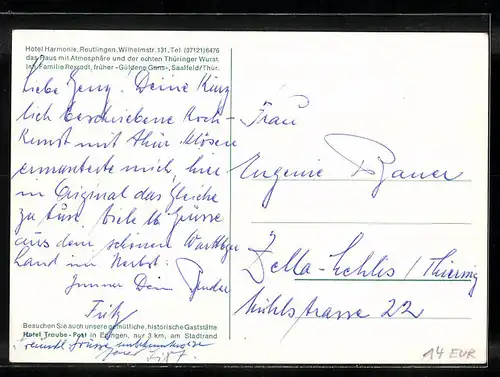 Hotel Harmonie, Reutlingen, Wilhelmstr. 131, Tel. (07121) 6476
das Haus mit Atmosphäre und der echten Thüringer Wurst.
Inh. Familie Rexrodt, früher »Güldene Gans«, Saalfeld/Thür.
Liebe Deine Kürz
lich beschriebene Koch-
Kunst mit Thür. Klösen
ermunterte mich, hier
im Original das Gleiche
zu tun. Viele lb. Grüsse
aus dem schönen
Land im Herbst.
Immer Dein Bruder
Fritz
Besuchen Sie auch unsere gemütliche, historische Gaststätte
Hotel Traube-Post in Eningen, nur 3 km, am Stadtrand
Freundl. Grüsse
Frau
Eugenie Bauer
Zella-Mehlis / Thüring
Mühlstrasse 22
14 EUR